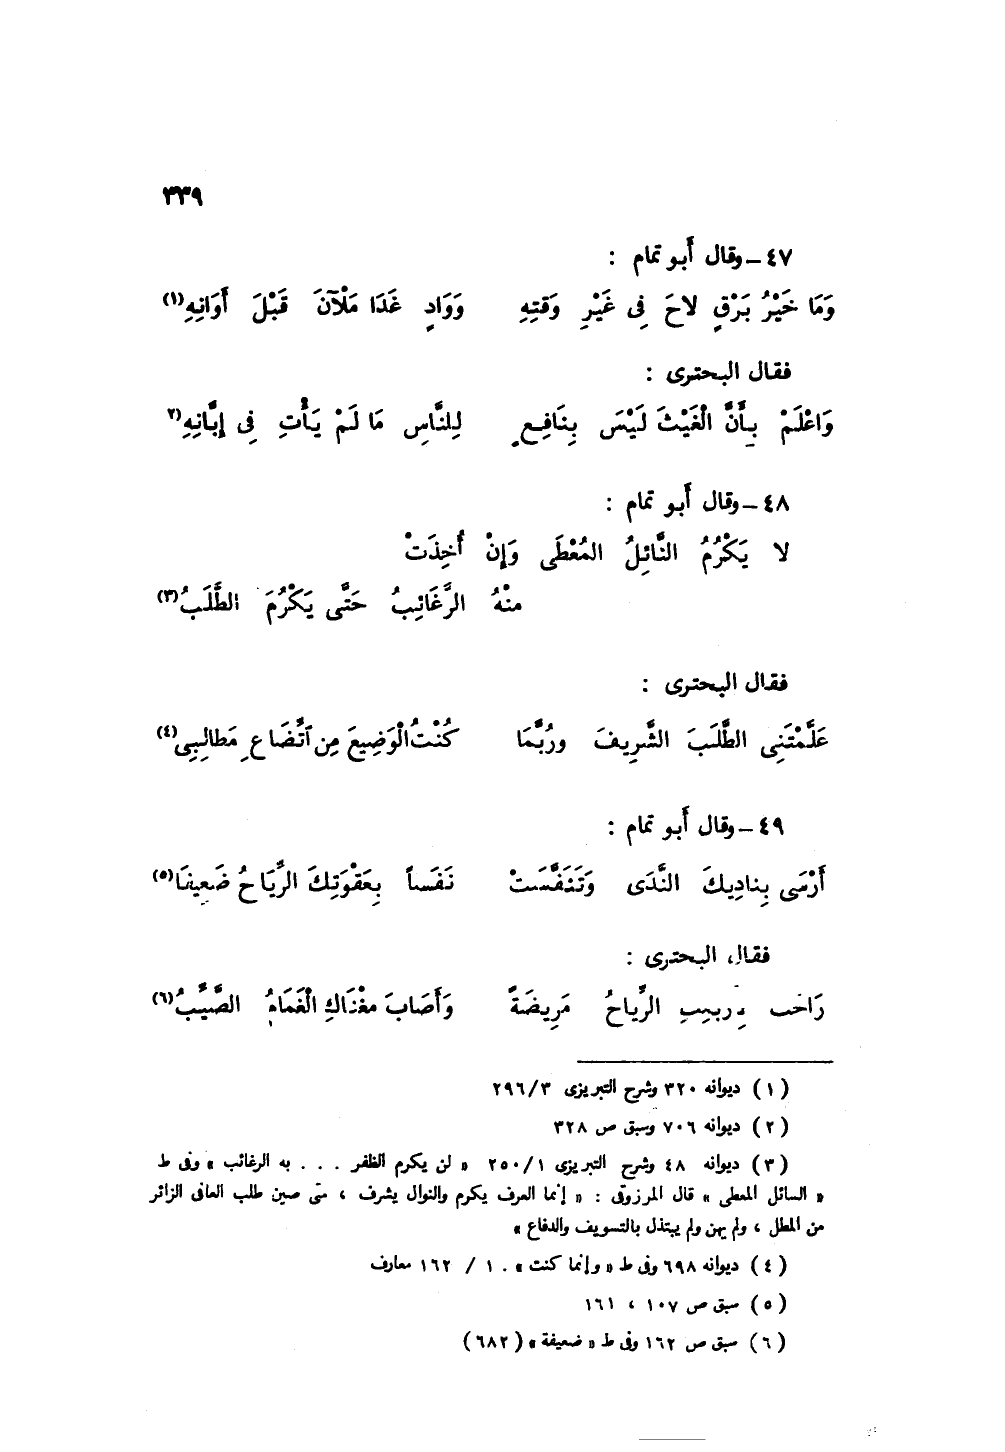 ٣٣٩
٤٧ – وقال أبو تمام :
وَمَا خَيْرُ بَرْقٍ لاحَ فِى غَيْرِ وَقتِهِ وَوَادٍ غَدَا مَلْآنَ قَبْلَ أَوَانِهِ(١)
فقال البحترى :
وَاعْلَمْ بِأَنَّ الْغَيْثَ لَيْسَ بِنَافِعٍ لِلنَّاسِ مَا لَمْ يَأْتِ فِى إِبَّانِهِ(٢
٤٨ – وقال أبو تمام :
لا يَكْرُمُ النَّائِلُ المُعْطَى وَإِنْ أُخِذَتْ
مِنْهُ الرَّغَائِبُ حَتَّى يَكْرُمَ الطَّلَبُ(٣)
فقال البحترى :
عَلَّمْتَنِى الطَّلَبَ الشَّرِيفَ ورُبَّمَا كُنْتُ الْوَضِيعَ مِن اتِّضَاعِ مَطالِبِى(٤)
٤٩ – وقال أبو تمام :
أَرْسَى بِنادِيكَ النَّدَى وَتَنَفَّسَتْ نَفَساً بِعَقْوَتِكَ الرِّيَاحُ ضَعِيفَا(٥)
فقال البحترى :
الرِّيَاحُ مَرِيضَةً وَأَصَابَ مغْنَاكِ الْغَمَامُ الصَّيِّبُ(٦)
(١) ديوانه ٣٢٠ وشرح التبريزى ٢٩٦/٣
(٢) ديوانه ٧٠٦ وسبق ص ٣٢٨
(٣) ديوانه ٤٨ وشرح التبريزى ٢٥٠/١ « لن يكرم الظفر . . . به الرغائب » وفى ط
« السائل المعطى » قال المرزوقى : « إنما العرف يكرم والنوال يشرف ، متى صين طلب العافى الزائر
من المطل ، ولم يهن ولم يبتذل بالتسويف والدفاع »
(٤) ديوانه ٦٩٨ وفى ط « وإنما كنت » . ١ / ١٦٢ معارف
(٥) سبق ص ١٠٧ ، ١٦١
(٦) سبق ص ١٦٢ وفى ط « ضعيفة » (٦٨٢)